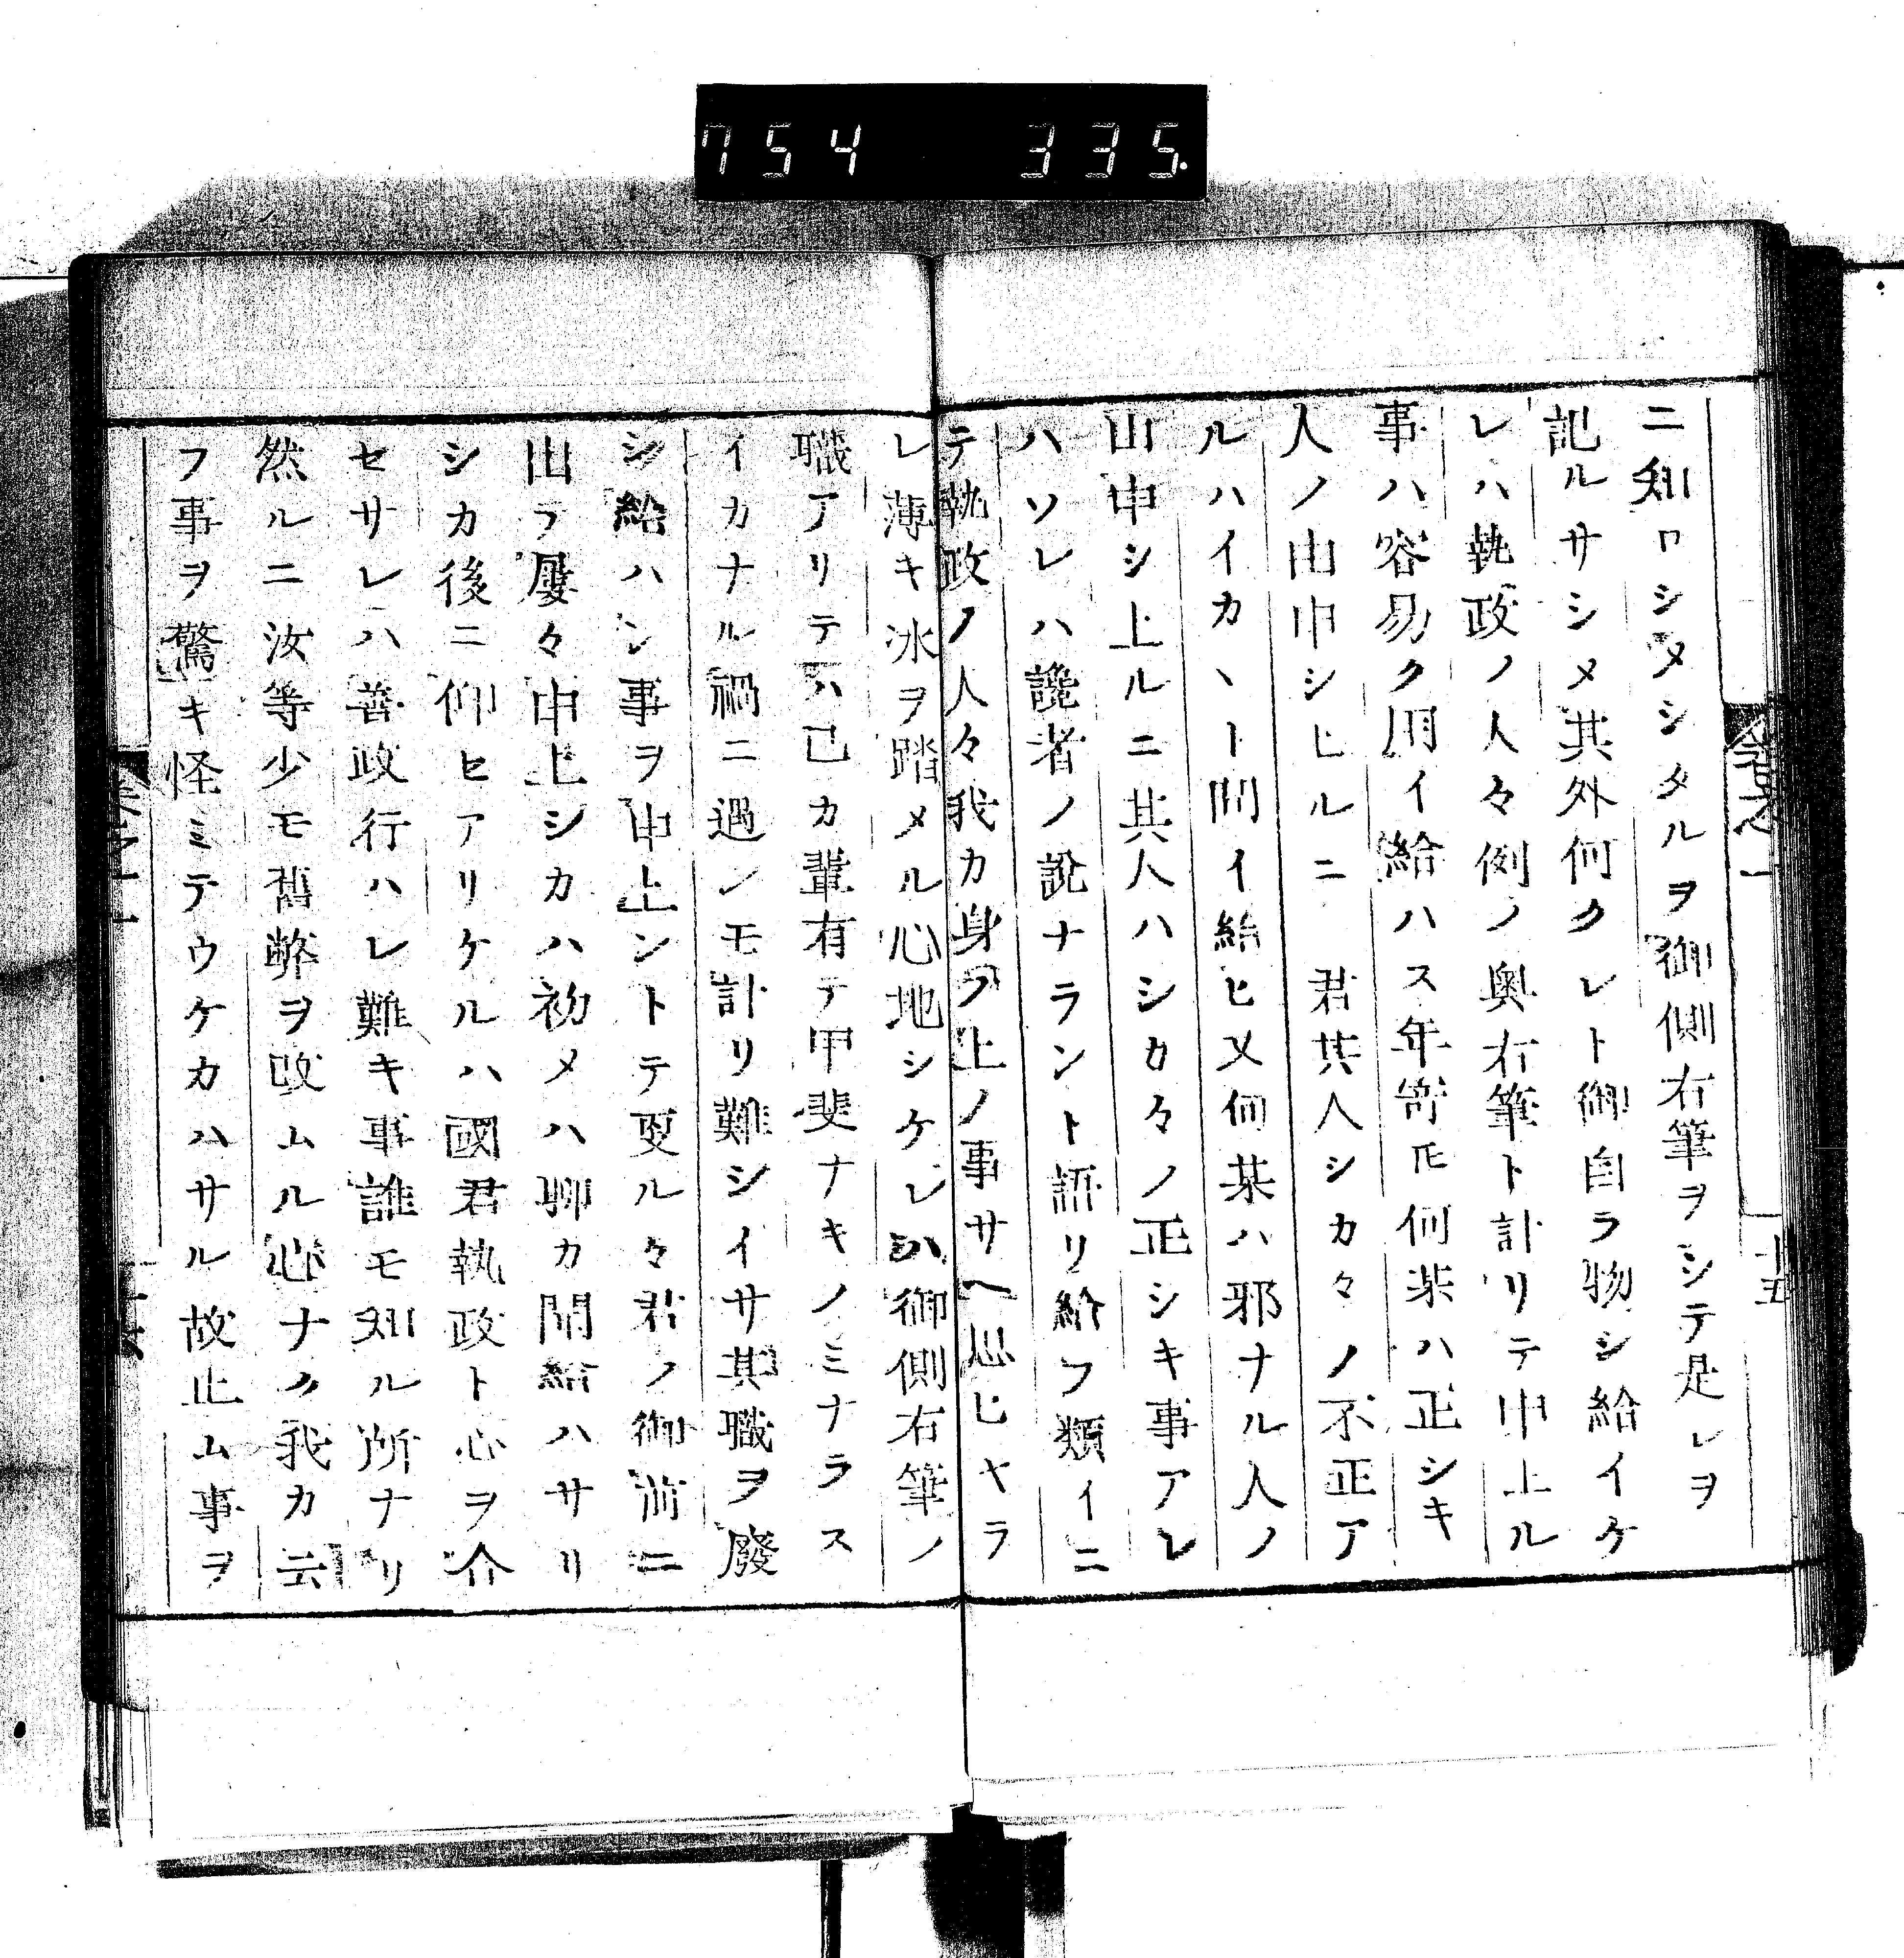 754 335.
ニ知ロシメシタルヲ御側右筆ヲシテ是レヲ
記ルサシメ其外何クレト御自ラ物シ給イケ
レハ執政ノ人々例ノ奥右筆ト計リテ申上ル
事ハ容易ク用イ給ハス年寄𪜈何某ハ正シキ
人ノ由申シヒルニ 君其人シカ々ノ不正ア
ルハイカヽト問イ給ヒ又何某ハ邪ナル人ノ
由申シ上ルニ其人ハシカ々ノ正シキ事アレ
ハソレハ讒者ノ説ナラント語リ給フ類イニ
テ執政ノ人々我カ身ノ上ノ事サヘ思ヒヤラ
十五
レ薄キ氷ヲ踏メル心地シケレハ御側右筆ノ
職アリテハ己カ輩有テ甲斐ナキノミナラス
イカナル禍ニ遇ンモ計リ難シイサ其職ヲ廢
シ給ハン事ヲ申上ントテ更ル々君ノ御前ニ
出テ屡々申上シカハ初メハ聊カ聞給ハサリ
シカ後ニ仰ヒアリケルハ國君執政ト心ヲ介
セサレハ善政行ハレ難キ事誰モ知ル所ナリ
然ルニ汝等少モ舊弊ヲ改ムル心ナク我カ云
フ事ヲ驚キ怪ミテウケカハサル故止ム事ヲ